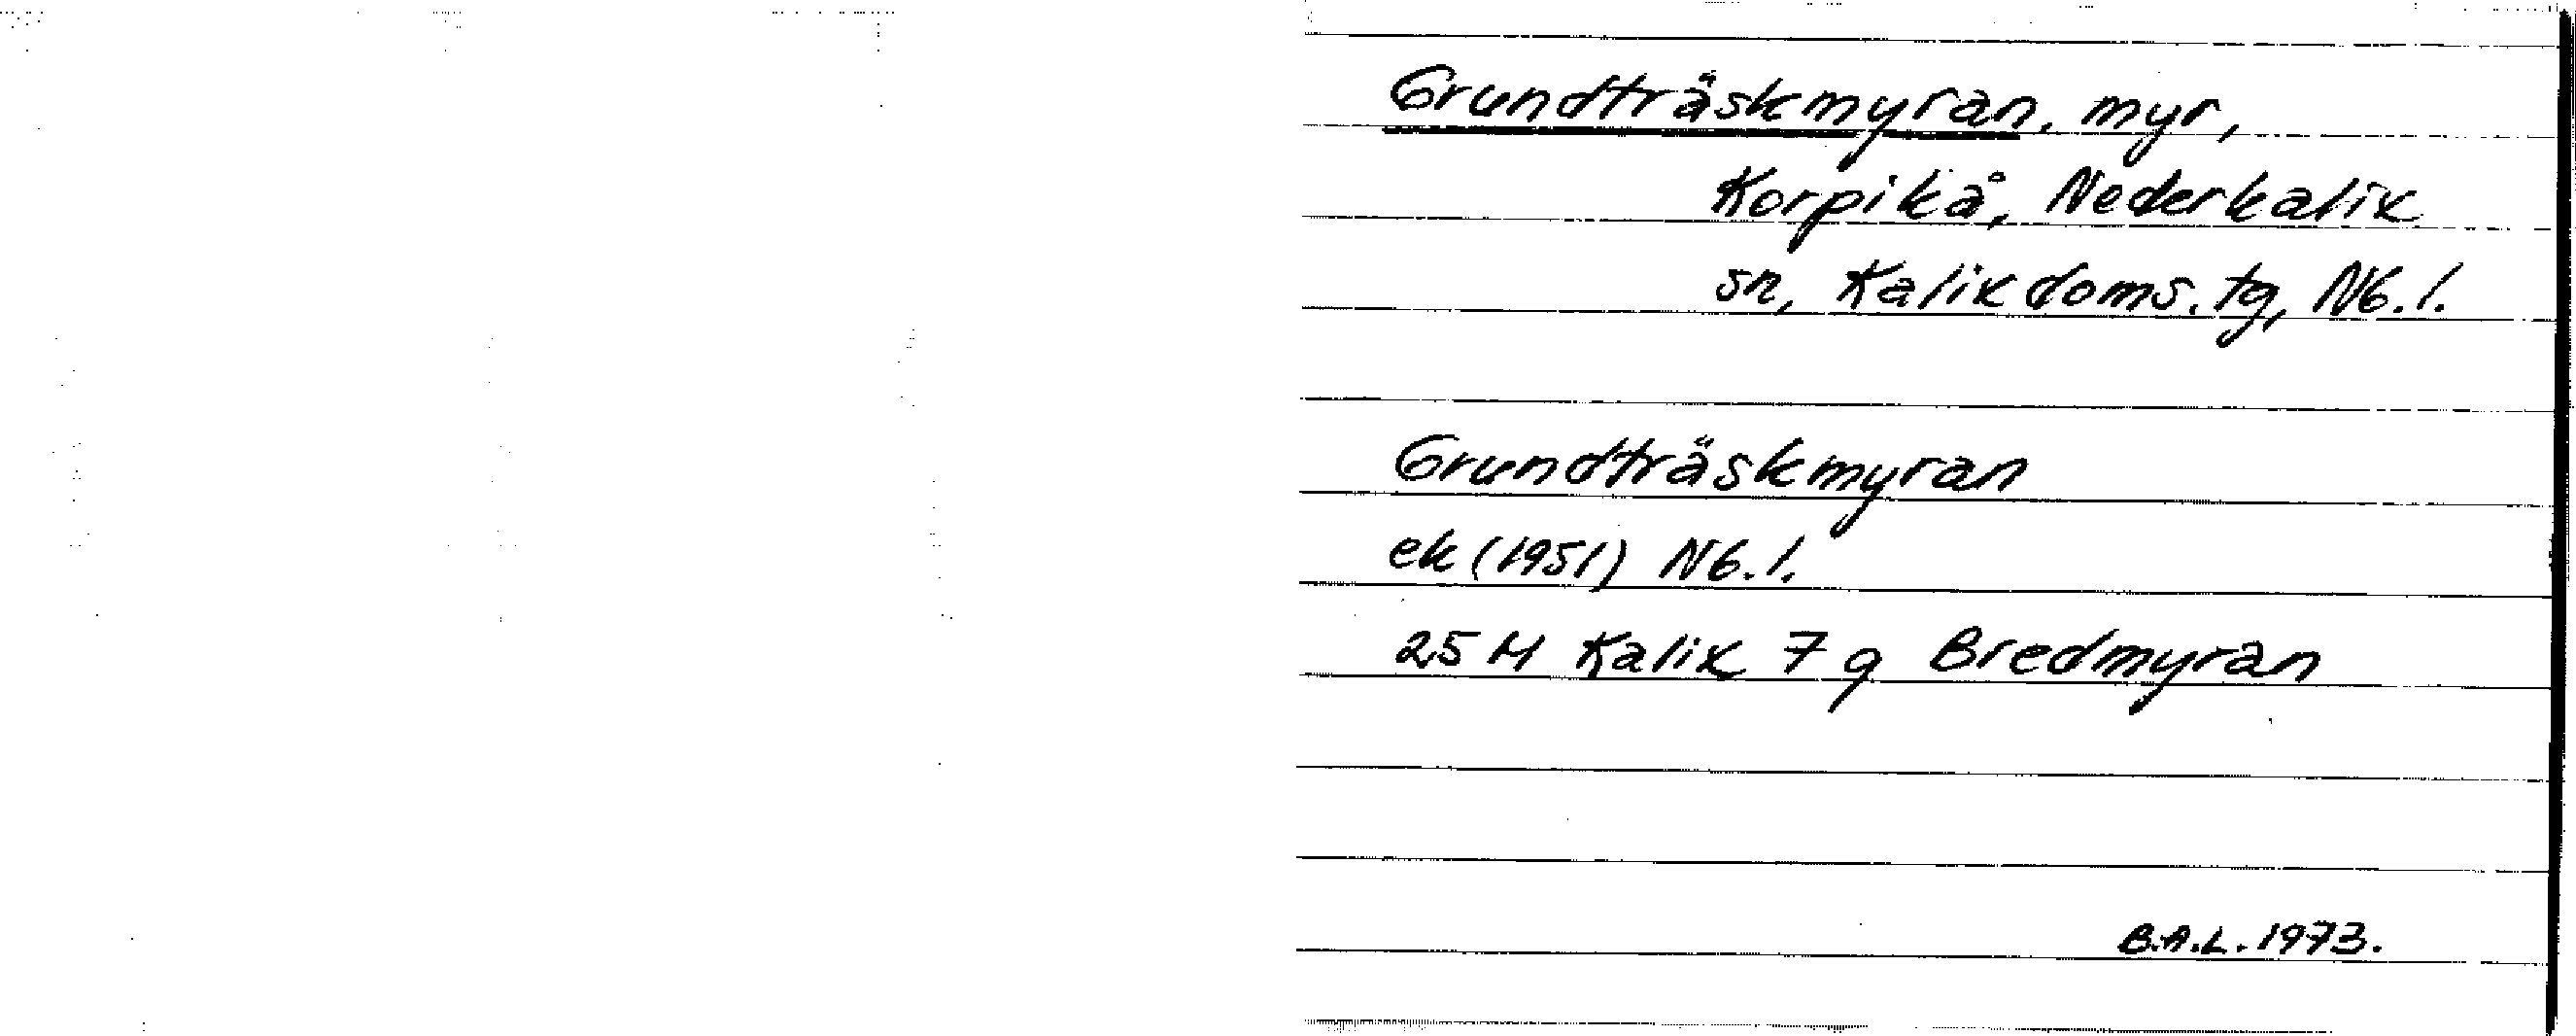 Grundträskmyran, myr,
Korpikå, Nederkalix
sn, Kalix doms. tg, Nb. l.
Grundträskmyran
ek (1951) Nb. l.
25 M Kalix 7 g Bredmyran
B.A.L. 1973.